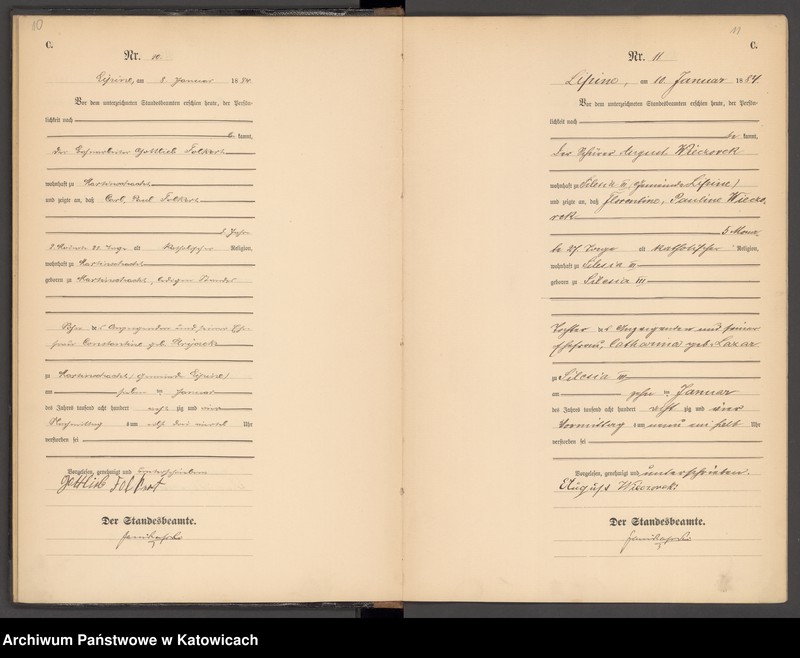 10
C.
Nr. 10
Lipine, am 8. Januar 1884.
Vor dem unterzeichneten Standesbeamten erschien heute, der Persön-
lichkeit nach
be kannt,
Der Gottlieb Folkert
wohnhaft zu Martinschacht
und zeigte an, daß Carl, Paul Folkert
5 Jahre
alt Katholischer Religion,
wohnhaft zu Martinschacht
geboren zu Martinschacht, ledigen Standes
Sohn des Anzeigenden und seiner Ehe-
frau Constantine geb.
zu Martinschacht, Gemeinde Lipine
am ten Januar
des Jahres tausend acht hundert acht zig und vier
Nachmittag um drei viertel Uhr
verstorben sei
Vorgelesen, genehmigt und unterschrieben
Gottlieb Folkert
Der Standesbeamte.
11
C.
Nr. 11
Lipine, am 10. Januar 1884.
Vor dem unterzeichneten Standesbeamten erschien heute, der Persön-
lichkeit nach
be kannt,
Der August Wieczorek
wohnhaft zu Silesia III, Gemeinde Lipine
und zeigte an, daß Florentine, Pauline Wieczo-
rek
5 Mona-
te 27 Tage alt katholischer Religion,
wohnhaft zu Silesia III
geboren zu Silesia III
Tochter des Anzeigenden und seiner
Ehefrau, Catharina geb. Lazar
zu Silesia III
am zehn ten Januar
des Jahres tausend acht hundert acht zig und vier
Vormittag um neun ein halb Uhr
verstorben sei
Vorgelesen, genehmigt und unterschrieben.
August Wieczorek
Der Standesbeamte.
Archiwum Państwowe w Katowicach